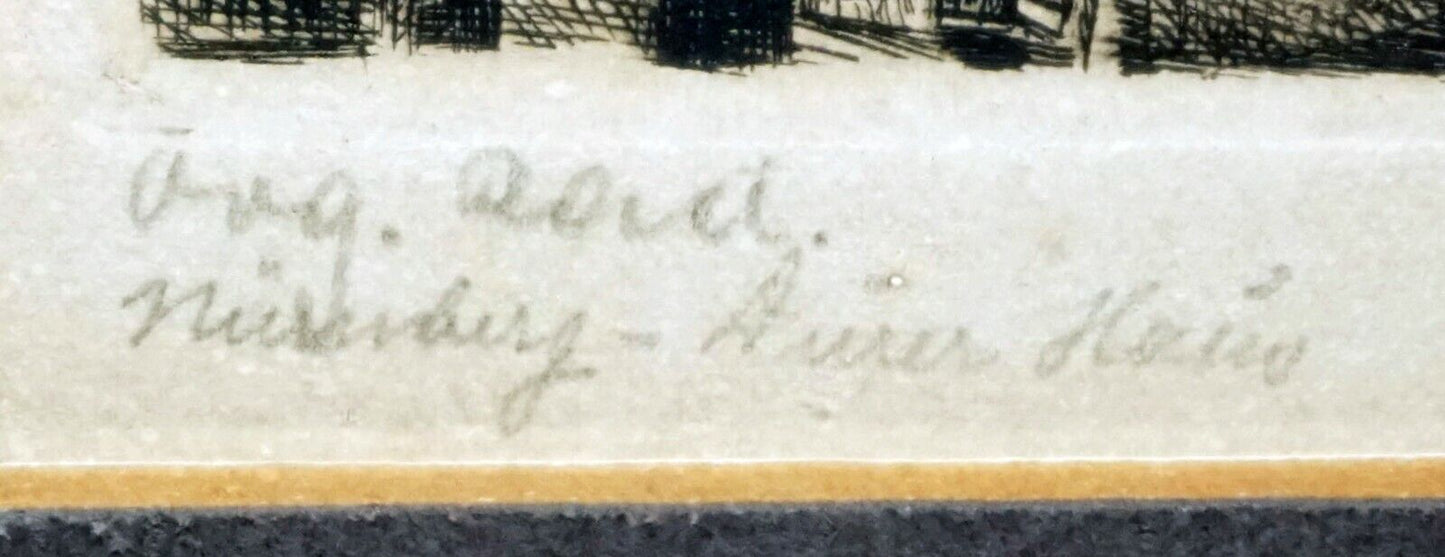 Orig. Rad.
Nürnberg - Dürer Haus